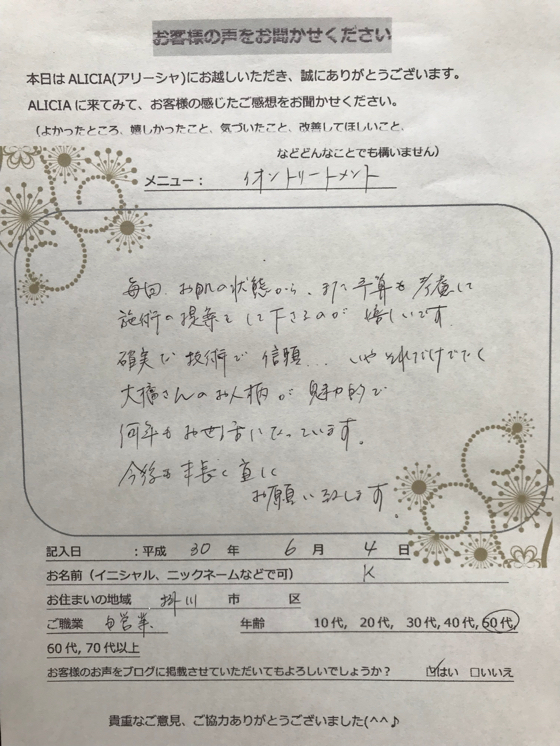 お客様の声をお聞かせください
本日は ALICIA(アリーシャ)にお越しいただき、誠にありがとうございます。
ALICIA に来てみて、お客様の感じたご感想をお聞かせください。
(よかったところ、嬉しかったこと、気づいたこと、改善してほしいこと、
などどんなことでも構いません)
メニュー: イオントリートメント
毎回、お肌の状態から、また予算も考慮して
施術の提案をして下さるのが嬉しいです
確実な技術で信頼... いやそれだけでなく
大橋さんのお人柄が魅力的で
何年もお世話になっています。
今後も末長く
お願い致します
記入日 :平成 30 年 6 月 4 日
お名前(イニシャル、ニックネームなどで可) K
お住まいの地域 掛川 市 区
ご職業 自営業、 年齢 10 代, 20 代, 30 代, 40 代, 50 代,
60 代, 70 代以上
お客様のお声をブログに掲載させていただいてもよろしいでしょうか? ☑はい □いいえ
貴重なご意見、ご協力ありがとうございました(^^♪